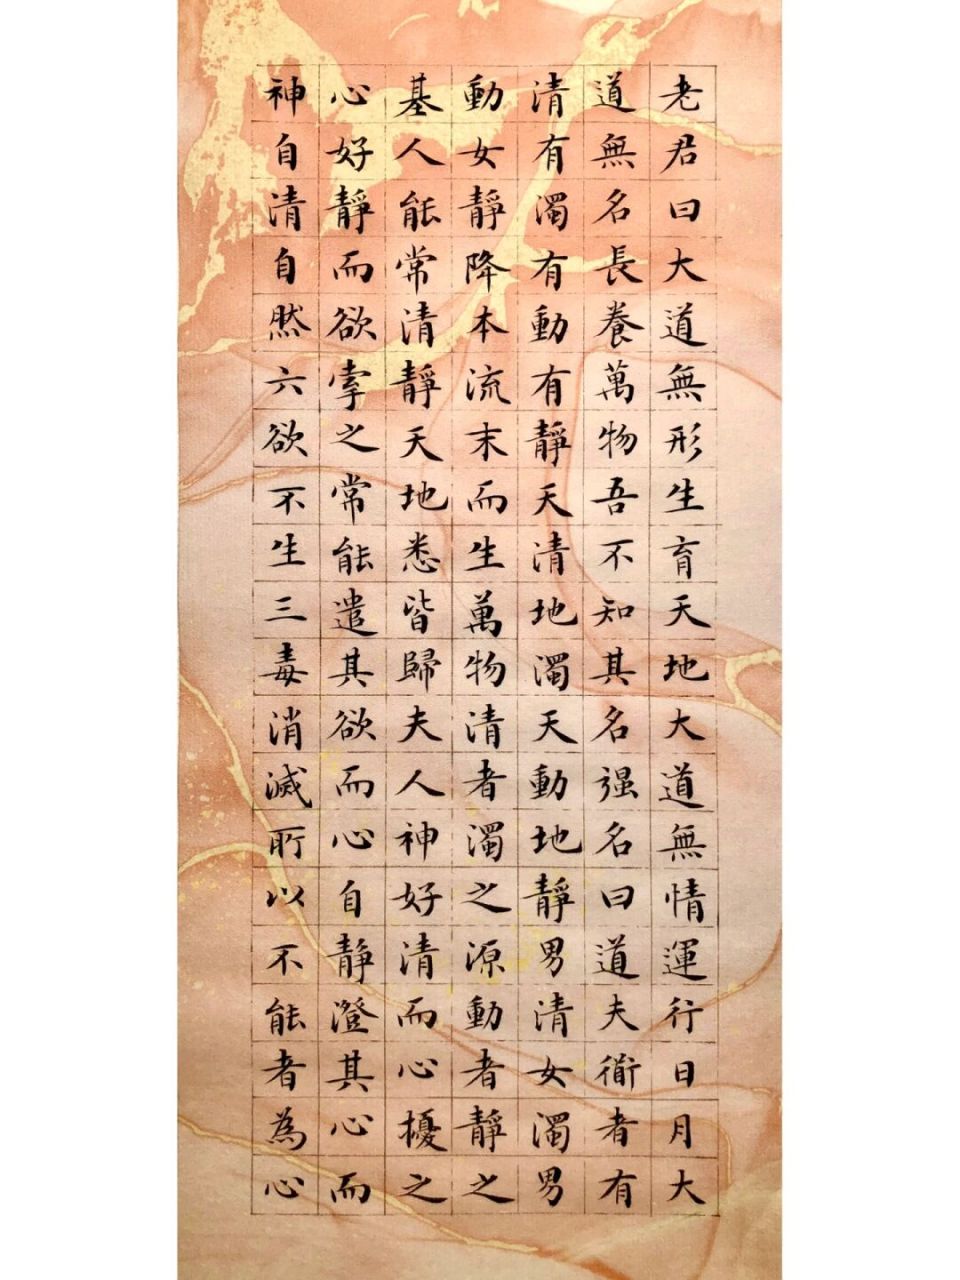 老君曰大道無形生育天地大道無情運行日月大
道無名長養萬物吾不知其名强名曰道夫衜者有
清有濁有動有靜天清地濁天動地靜男清女濁男
動女靜降本流末而生萬物清者濁之源動者靜之
基人能常清靜天地悉皆歸夫人神好清而心擾之
心好靜而欲牽之常能遣其欲而心自静澄其心而
神自清自然六欲不生三毒消滅所以不能者為心